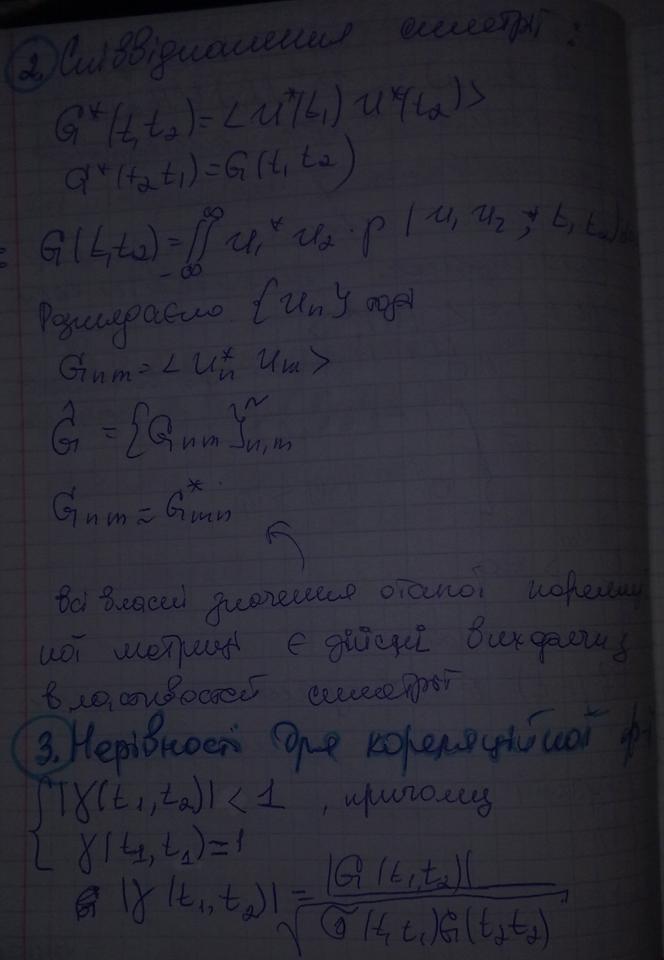 2. Співвідношення симетрії :
G*(t₁t₂) = <u*(t₁) u*(t₂)>
G*(t₂t₁) = G(t₁t₂)
G(t₁t₂) = ∬ u₁* u₂ · p ( u₁ u₂ ; t₁ t₂)
-∞ ∞
Розглядаємо {uₙ} тоді
Gnm = <uₙ* uₘ>
Ĝ = {Gnm}n,m
Gnm = G*mn
всі власні значення отакої кореляцій
ної матриці є дійсні виходячи з
властивостей симетрії
3. Нерівності для кореляційної
|γ(t₁,t₂)| < 1 , причому
γ(t₁,t₁) = 1
|γ(t₁,t₂)| = |G(t₁,t₂)| / √G(t₁t₁)G(t₂t₂)